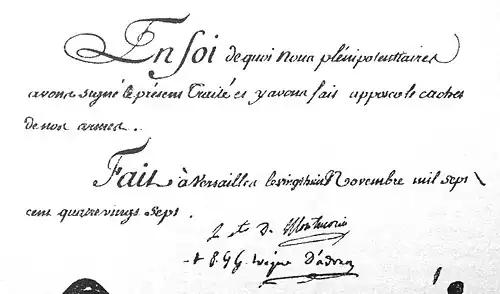 En foi de quoi Nous plénipotentiaires
avons signé le présent Traité et y avons fait apposer le cachet
de nos armes.
Fait à Versailles le vingt huit Novembre mil sept
cent quatre vingt sept.
De Montmorin
Pigneau d'Adran